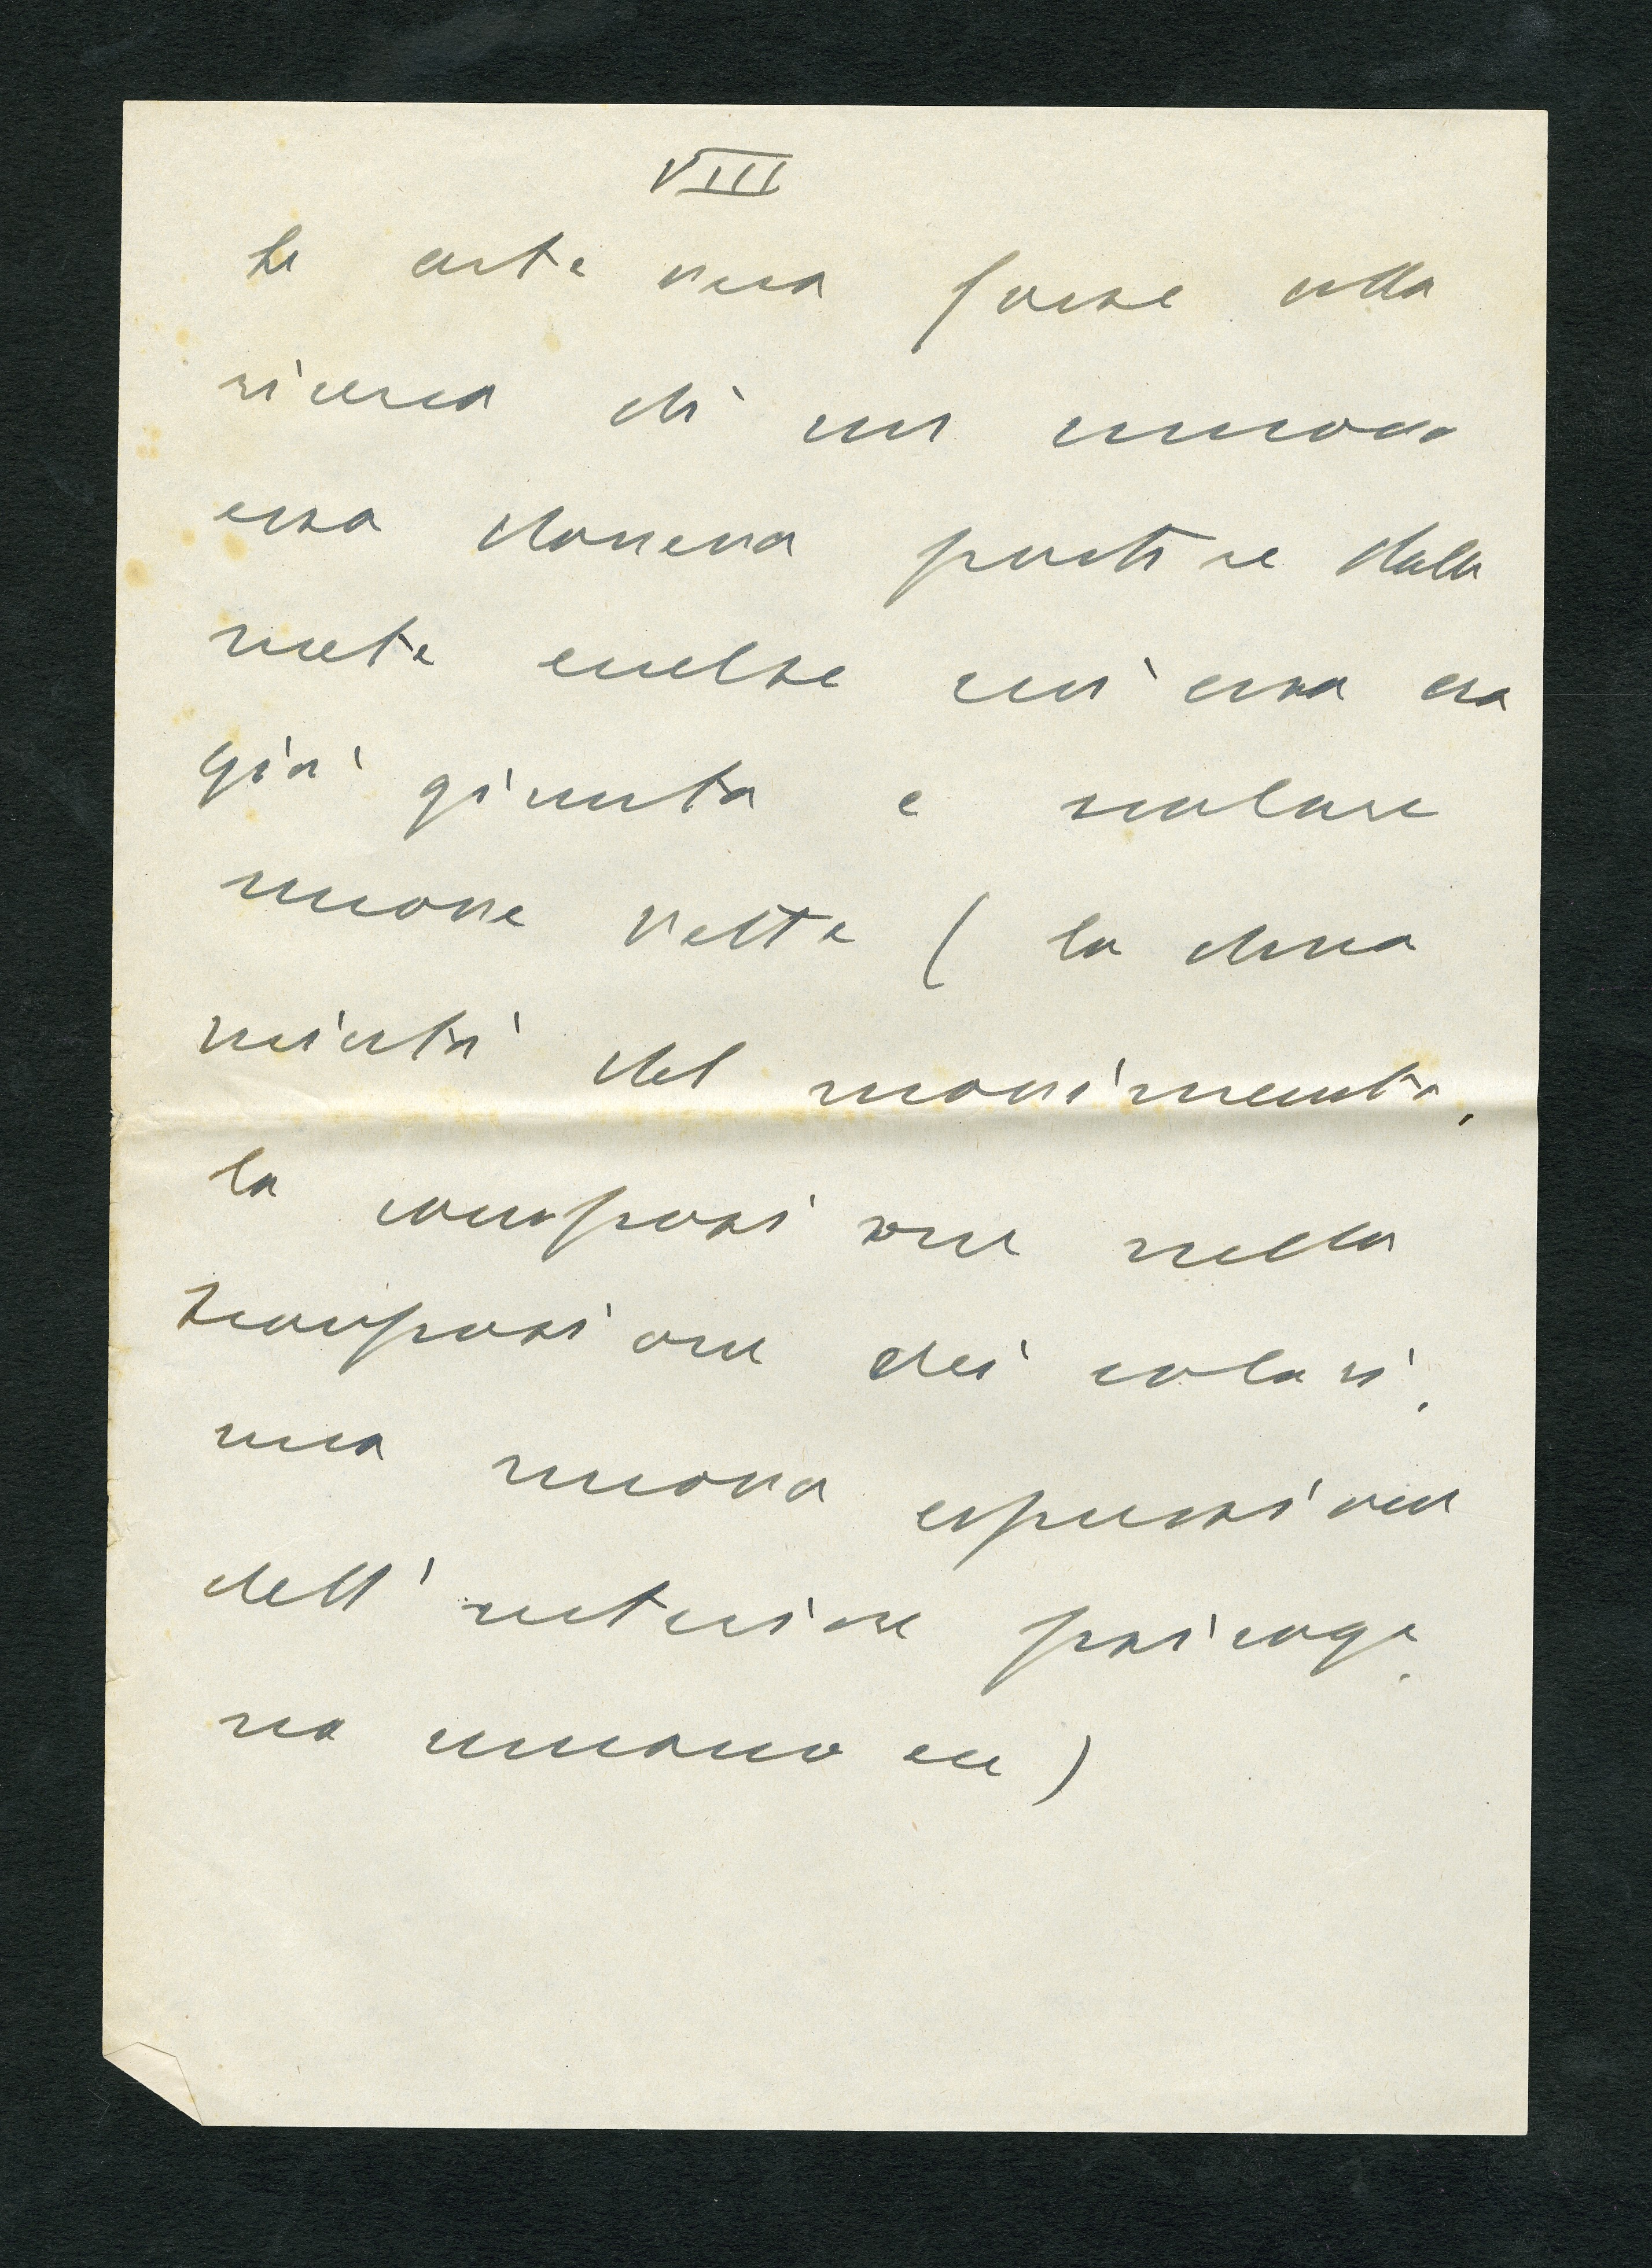 VIII
te arte vera fosse alla
ricerca di un nuovo
essa doveva partire dalle
mete eccelse cui essa era
già giunta e scalare
nuove vette ( la dina
micità del movimento,
la composizione nella
scomposizione dei colori,
una nuova espressione
dell'interiore paicoge
no umano ecc )